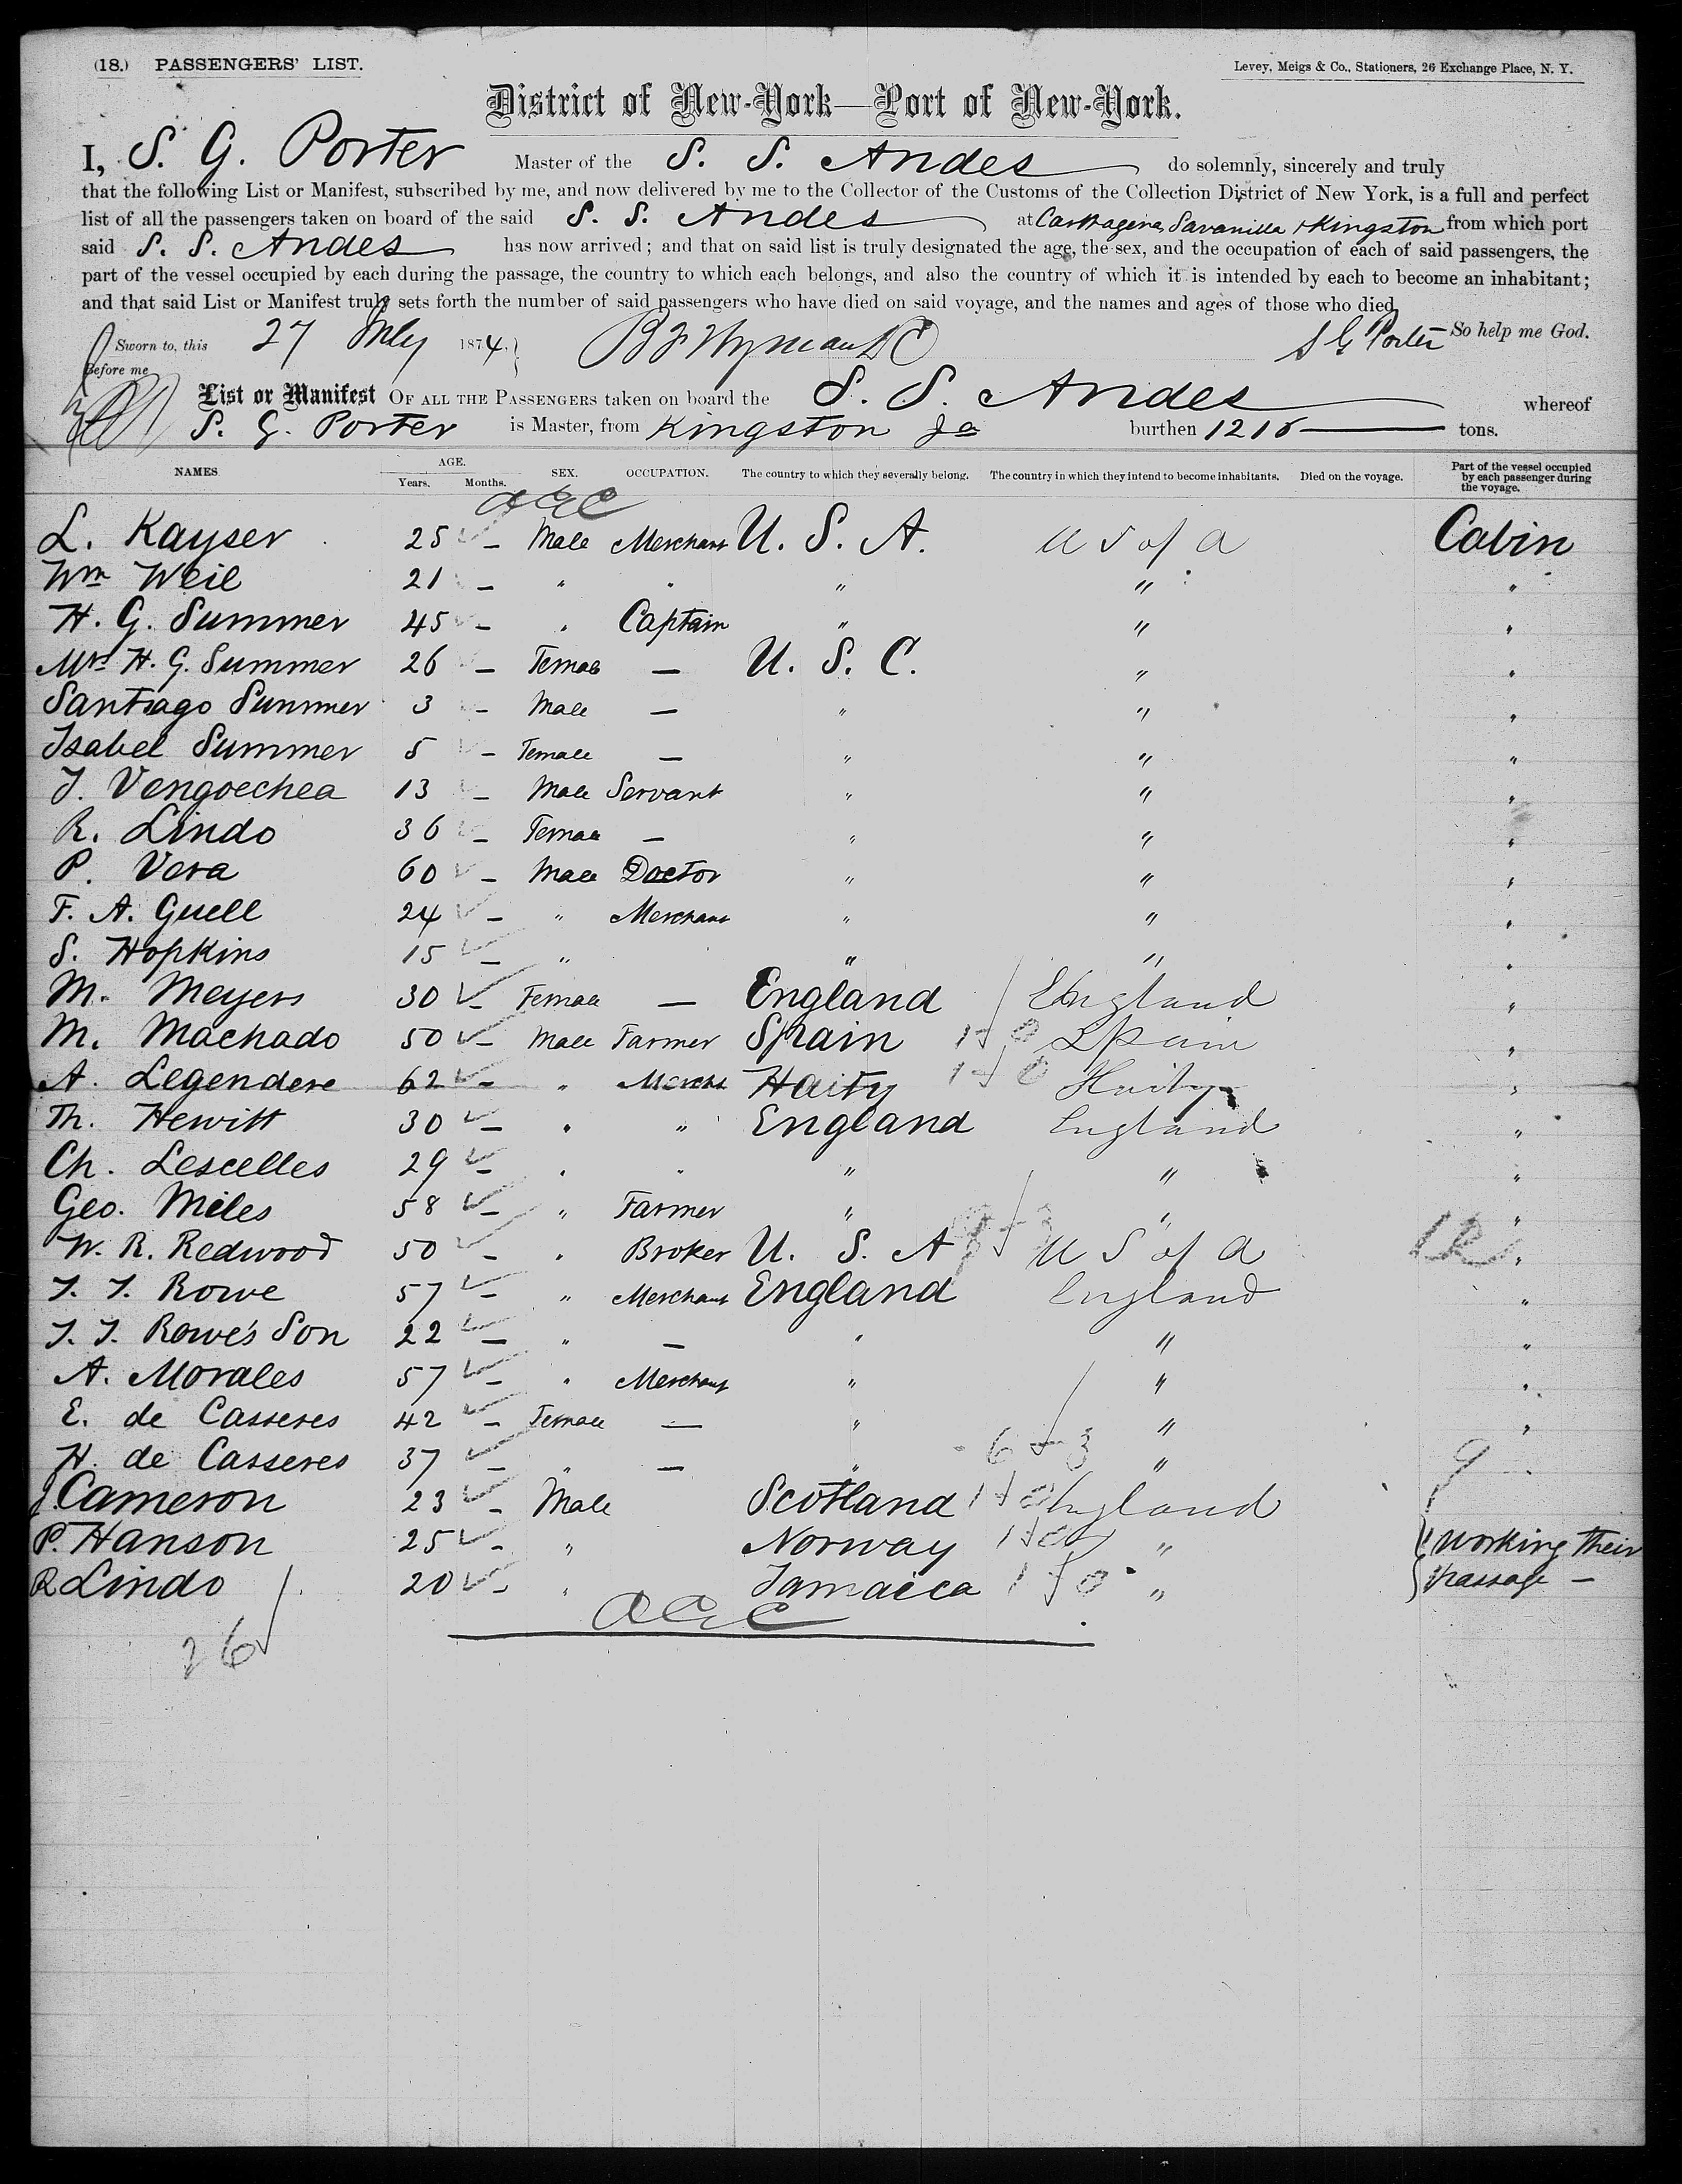 (18.) PASSENGERS' LIST. Levey, Meigs & Co., Stationers, 26 Exchange Place, N. Y.
District of New-York—Port of New-York.
I, S. G. Porter Master of the S. S. Andes do solemnly, sincerely and truly
that the following List or Manifest, subscribed by me, and now delivered by me to the Collector of the Customs of the Collection District of New York, is a full and perfect
list of all the passengers taken on board of the said S. S. Andes at Carthagena, Savanilla & Kingston from which port
said S. S. Andes has now arrived; and that on said list is truly designated the age, the sex, and the occupation of each of said passengers, the
part of the vessel occupied by each during the passage, the country to which each belongs, and also the country of which it is intended by each to become an inhabitant;
and that said List or Manifest truly sets forth the number of said passengers who have died on said voyage, and the names and ages of those who died.
Sworn to, this 27 July 1874. S G Porter So help me God.
Before me
List or Manifest OF ALL THE PASSENGERS taken on board the S. S. Andes whereof
S. G. Porter is Master, from Kingston Ja burthen tons.
NAMES. AGE. Years. Months. SEX. OCCUPATION. The country to which they severally belong. The country in which they intend to become inhabitants. Died on the voyage. Part of the vessel occupied by each passenger during the voyage.
L. Kayser 25 – Male Merchant U. S. A. U S of A Cabin
Wm Weil 21 – " " " " "
H. G. Summer 45 – " Captain " " "
Mrs H. G. Summer 26 – Female — U. S. C. " "
Santiago Summer 3 – Male — " " "
Isabel Summer 5 – Female — " " "
J. Vengoechea 13 – Male Servant " " "
R. Lindo 36 – Female — " " "
P. Vera 60 – Male Doctor " " "
F. A. Guell 24 – " Merchant " " "
S. Hopkins 15 – " " " "
M. Meyers 30 – Female — England England "
M. Machado 50 – Male Farmer Spain Spain "
A. Legendere 62 – " Mercht Haity Haity "
Th. Hewitt 30 – " " England England "
Ch. Lescelles 29 – " " " " "
Geo. Miles 58 – " Farmer " " "
W. R. Redwood 50 – " Broker U. S. A U S of A "
J. J. Rowe 57 – " Merchant England England "
J. J. Rowe's Son 22 – " — " " "
A. Morales 57 – " Merchant " " "
E. de Casseres 42 – Female — " " "
H. de Casseres 37 – " — " " "
J Cameron 23 – Male Scotland England
P. Hanson 25 – " Norway " working their
R Lindo 20 – " Jamaica " passage –
26